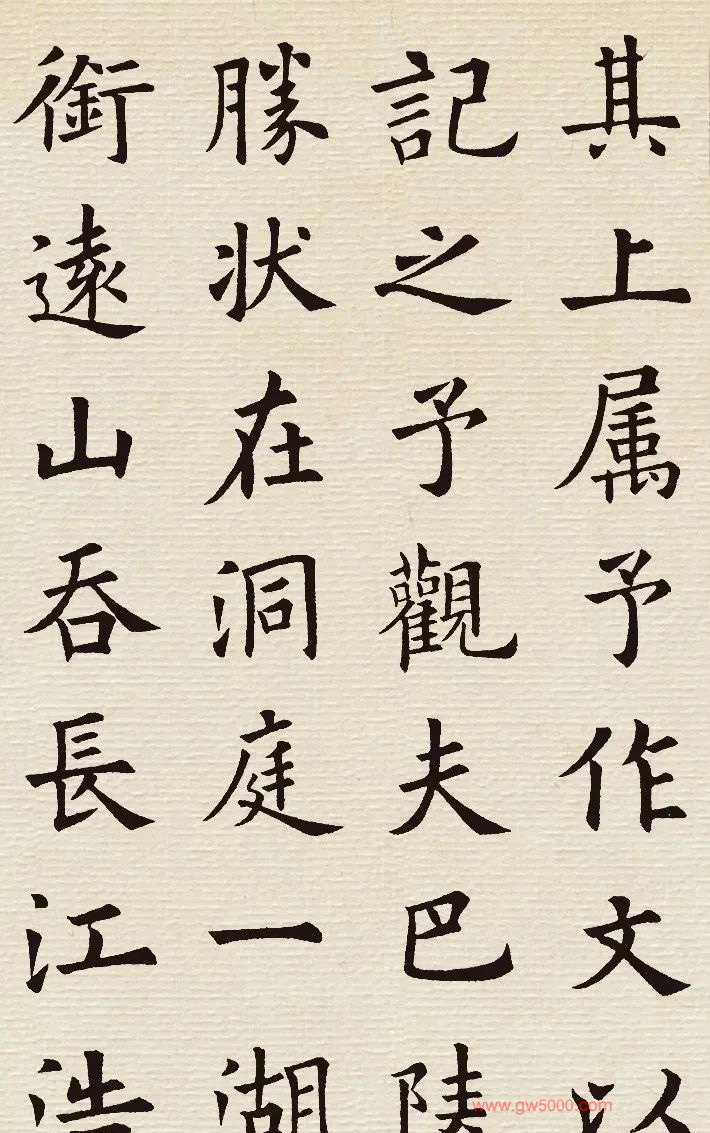 其上属予作文以
記之予觀夫巴陵
勝状在洞庭一湖
銜遠山吞長江浩
www.gw5000.com